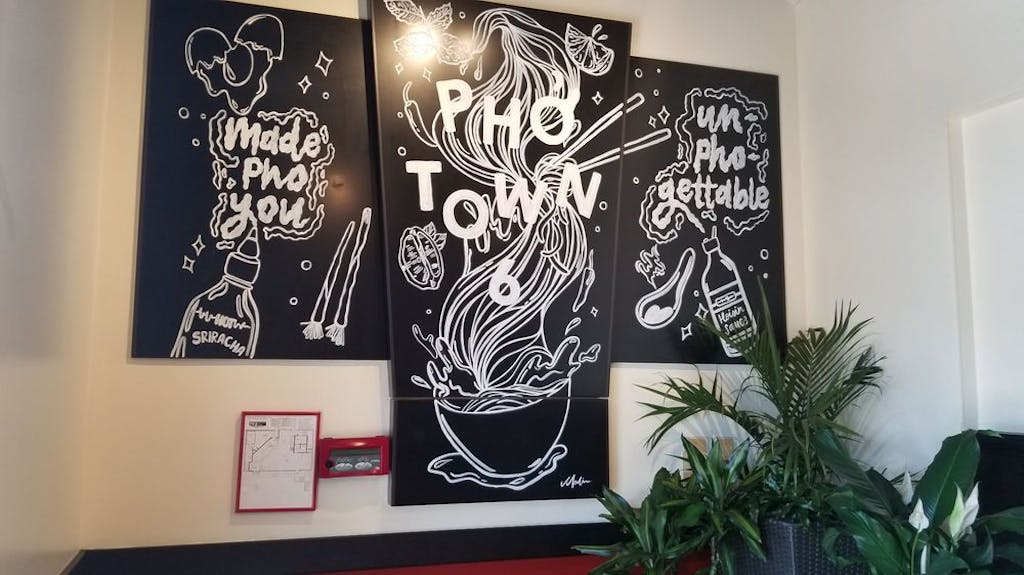 Made
Pho
you
SRIRACHA
PHO
TOWN
6
un-
pho-
gettable
Hoisin
Sauce